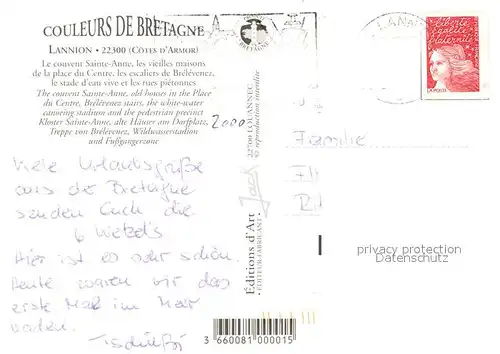 COULEURS DE BRETAGNE
LANNION • 22300 (CÔTES D'ARMOR)
Le couvent Sainte-Anne, les vieilles maisons
de la place du Centre, les escaliers de Brélévenez,
le stade d'eau vive et les rues piétonnes
The couvent Sainte-Anne, old houses in the Place
du Centre, Brélévenez stairs, the white-water
canoeing stadium and the pedestrian precinct
Kloster Sainte-Anne, alte Häuser am Dorfplatz,
Treppe von Brélévenez, Wildwasserstadion
und Fußgangerzone
Viele Urlaubsgrüße
aus der Bretagne
senden Euch die
6 Wetzel's
Hier ist es sehr schön.
Heute waren wir das
erste Mal im Meer
baden.
Tschüßi
2000
Editions d'Art Jack
EDITEUR-FABRICANT
22700 LOUANNEC
© reproduction interdite
BRETAGNE
LANN
liberté
égalité
fraternité
LA POSTE
Familie
privacy protection
Datenschutz
3 660081 000015